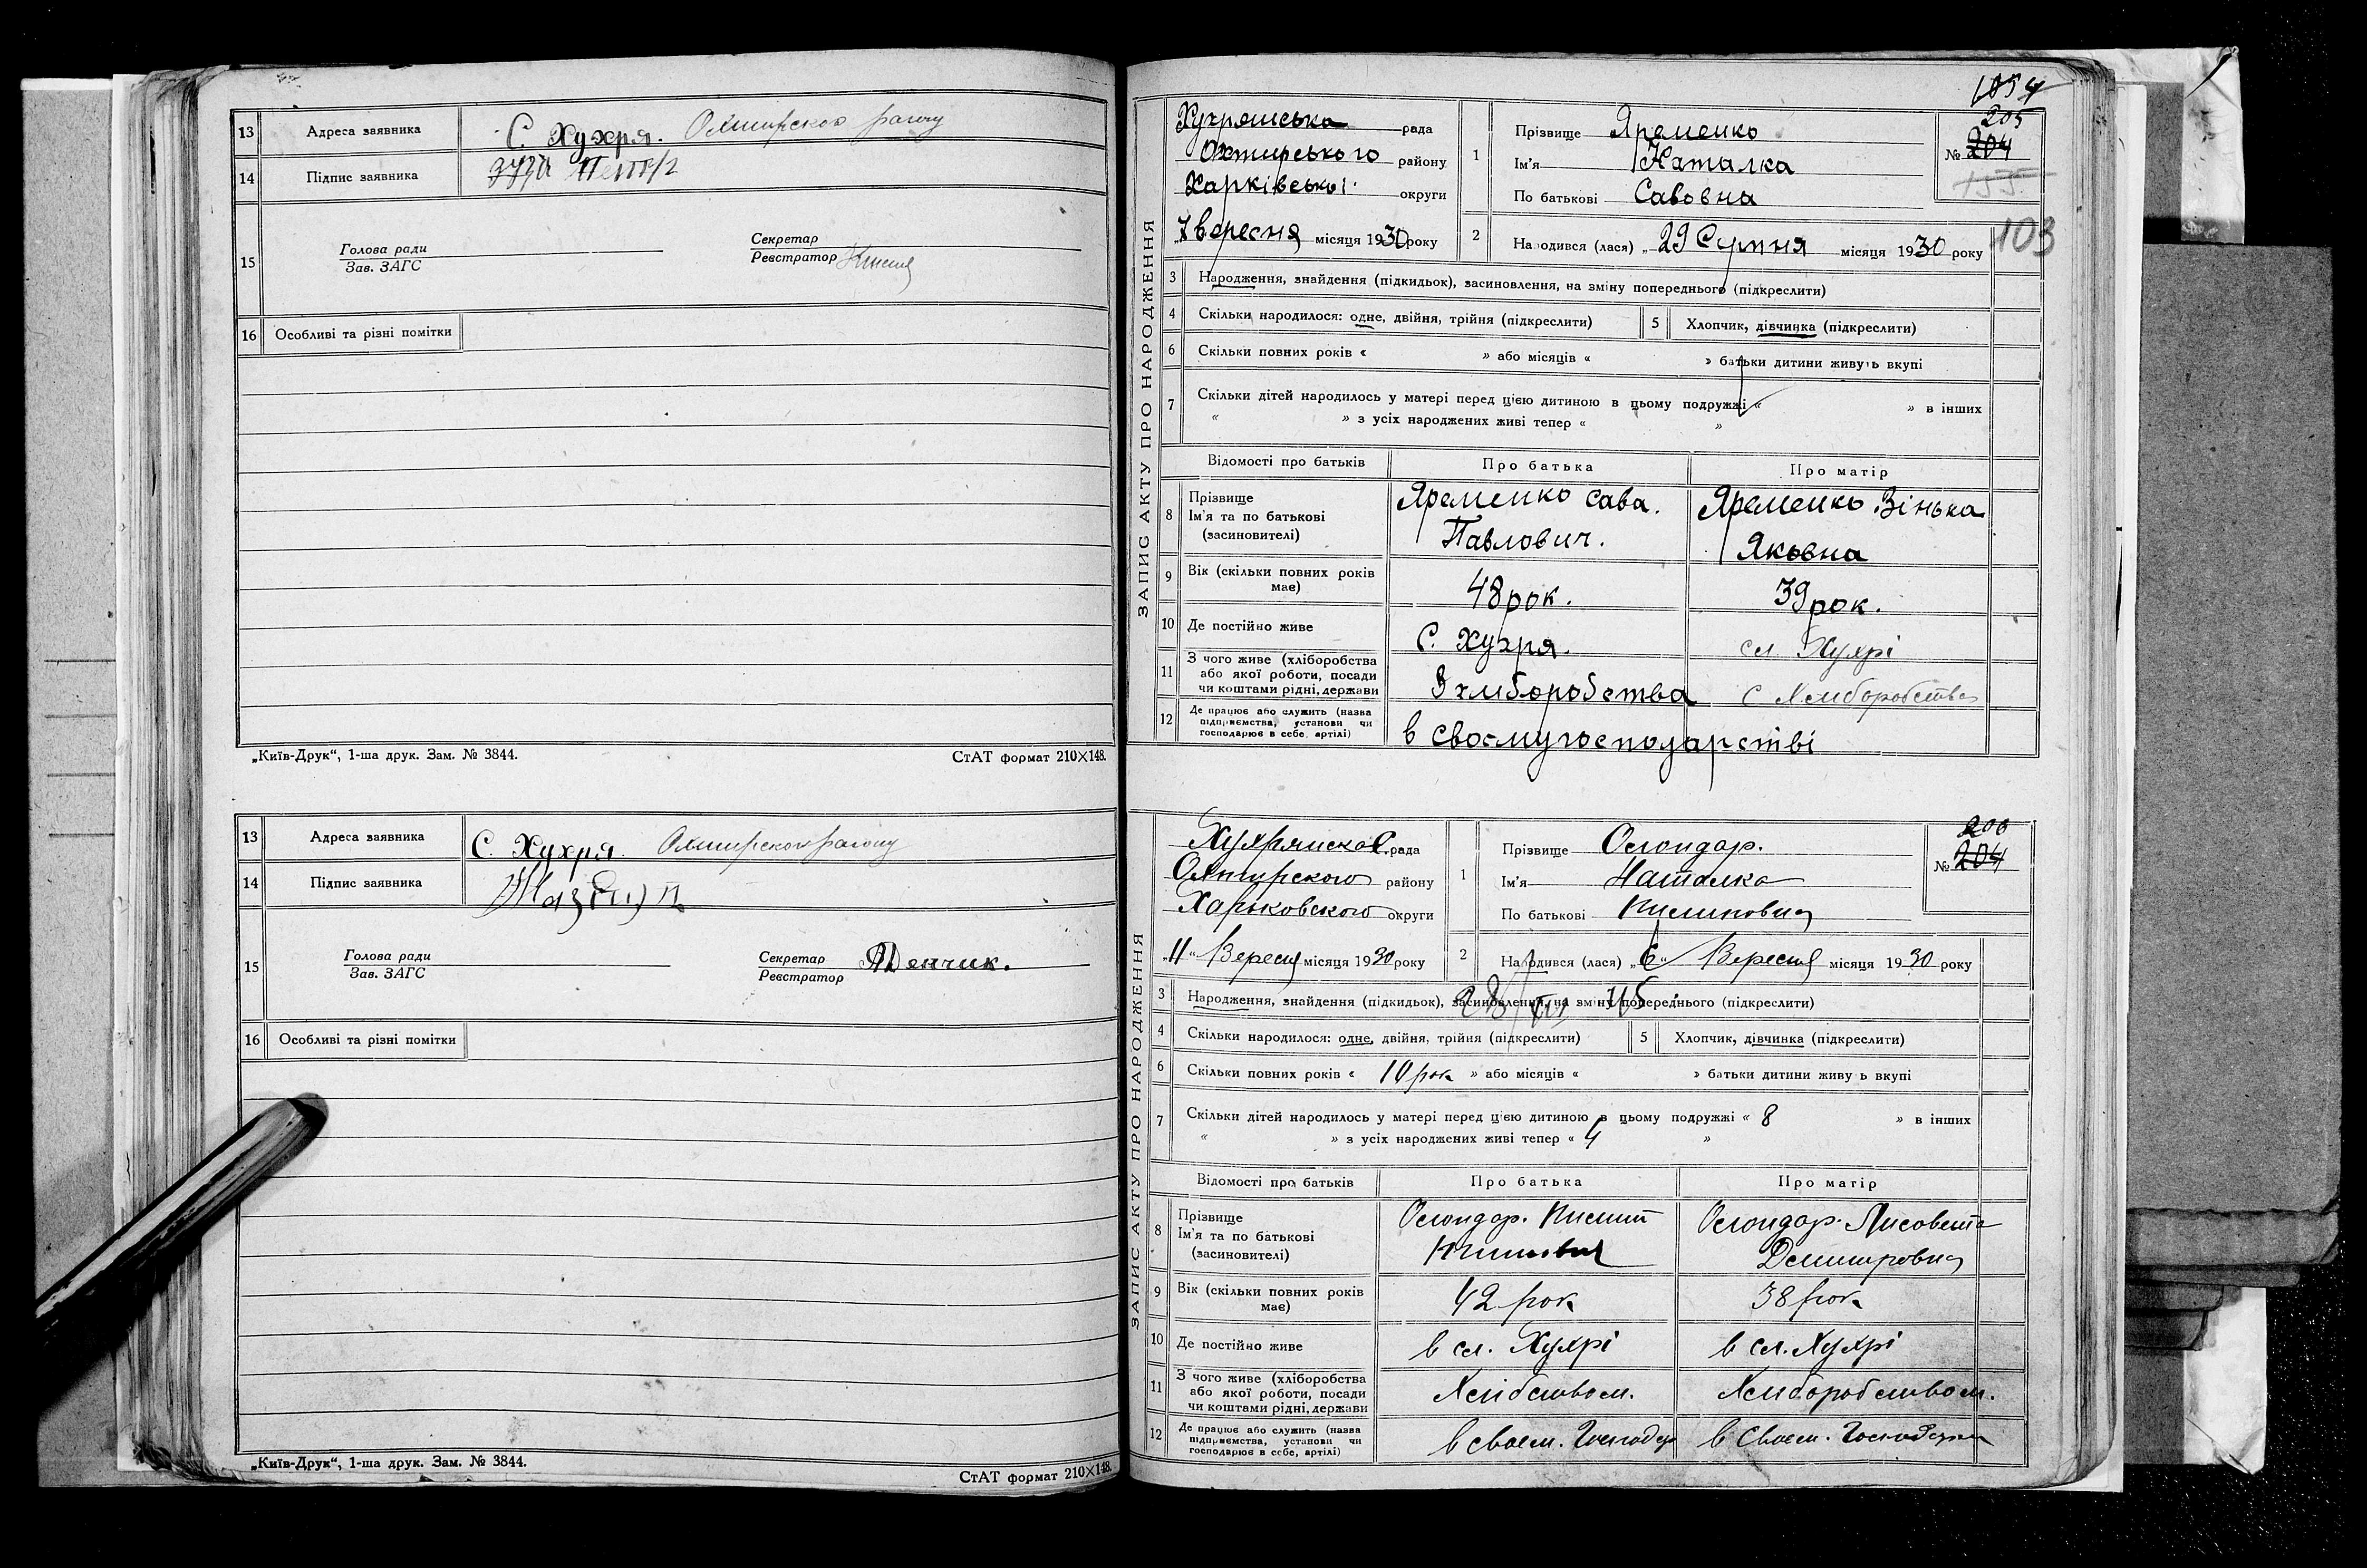 13 Адреса заявника С. Хухря. Охтирского району
14 Підпис заявника
15 Голова ради
Зав. ЗАГС
Секретар
Реєстратор
16 Особливі та різні помітки
„Київ-Друк“, 1-ша друк. Зам. № 3844. СтАТ формат 210×148.
13 Адреса заявника С. Хухря. Охтирского району
14 Підпис заявника
15 Голова ради
Зав. ЗАГС
Секретар
Реєстратор
16 Особливі та різні помітки
„Київ-Друк“, 1-ша друк. Зам. № 3844.
СтАТ формат 210×148.
1054
ЗАПИС АКТУ ПРО НАРОДЖЕННЯ
Хухрянська рада
Охтирського району
Харківської округи
„7 вересня місяця 1930 року
1 Прізвище Яременко
Ім'я Наталка
По батькові Савовна
205
№ 204
155
103
2 Народився (лася) „29 Серпня місяця 1930 року
3 Народження, знайдення (підкидьок), засиновлення, на зміну попереднього (підкреслити)
4 Скільки народилося: одне, двійня, трійня (підкреслити) 5 Хлопчик, дівчинка (підкреслити)
6 Скільки повних років « » або місяців « » батьки дитини живуть вкупі
7 Скільки дітей народилось у матері перед цією дитиною в цьому подружжі « » в інших
« » з усіх народжених живі тепер « »
Відомості про батьків Про батька Про матір
8 Прізвище
Ім'я та по батькові
(засиновителі)
Яременко Сава.
Павлович.
Яременко Зінька
Яковна
9 Вік (скільки повних років має) 48 рок. 39 рок.
10 Де постійно живе С. Хухря. сл. Хухрі
11 З чого живе (хліборобства
або якої роботи, посади
чи коштами рідні, держави
З хліборобства с Хлиборобства
12 Де працює або служить (назва
підприємства, установи чи
господарює в себе, артілі)
в своємугосподарстві
ЗАПИС АКТУ ПРО НАРОДЖЕННЯ
рада
Охтирского району
Харьковского округи
„11“ Вересня місяця 1930 року
1 Прізвище
Ім'я Наталка
По батькові
206
№ 204
2 Народився (лася) „6“ Вересня місяця 1930 року
3 Народження, знайдення (підкидьок), засиновлення, на зміну попереднього (підкреслити)
4 Скільки народилося: одне, двійня, трійня (підкреслити) 5 Хлопчик, дівчинка (підкреслити)
6 Скільки повних років « 10 рок » або місяців « » батьки дитини живуть вкупі
7 Скільки дітей народилось у матері перед цією дитиною в цьому подружжі « 8 » в інших
« » з усіх народжених живі тепер « 4 »
Відомості про батьків Про батька Про матір
8 Прізвище
Ім'я та по батькові
(засиновителі)
Лисовета
9 Вік (скільки повних років має) 42 рок 38 рок
10 Де постійно живе в сл. Хухрі в сл. Хухрі
11 З чого живе (хліборобства
або якої роботи, посади
чи коштами рідні, держави
Хлиборобством.
12 Де працює або служить (назва
підприємства, установи чи
господарює в себе, артілі)
в своем. в своем.